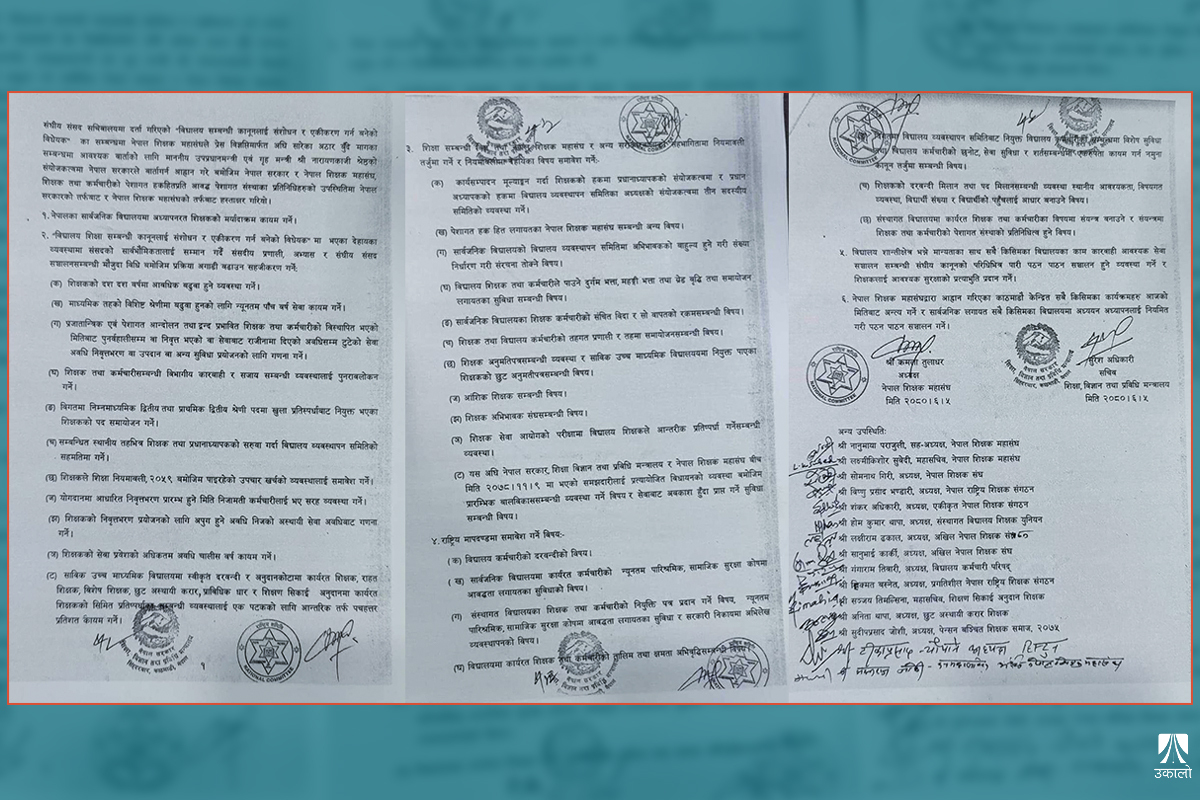 संघीय संसद सचिवालयमा दर्ता गरिएको "विद्यालय सम्बन्धी कानूनलाई संशोधन र एकीकरण गर्न बनेको
विधेयक" का सम्बन्धमा नेपाल शिक्षक महासंघले प्रेस विज्ञप्तिमार्फत अघि सारेका अठार बुँदे मागका
सम्बन्धमा आवश्यक वार्ताको लागि माननीय उपप्रधानमन्त्री एवं गृह मन्त्री श्री नारायणकाजी श्रेष्ठको
संयोजकत्वमा नेपाल सरकारले वार्तागर्न आह्वान गरे बमोजिम नेपाल सरकार र नेपाल शिक्षक महासंघ,
शिक्षक तथा कर्मचारीको पेशागत हकहितप्रति आबद्ध पेशागत संस्थाका प्रतिनिधिहरुको उपस्थितिमा नेपाल
सरकारको तर्फबाट र नेपाल शिक्षक महासंघको तर्फबाट हस्ताक्षर गरियो।
१. नेपालका सार्वजनिक विद्यालयमा अध्यापनरत शिक्षकको मर्यादाक्रम कायम गर्ने।
२. "विद्यालय शिक्षा सम्बन्धी कानूनलाई संशोधन र एकीकरण गर्न बनेको विधेयक" मा भएका देहायका
व्यवस्थामा संसदको सार्वभौमिकतालाई सम्मान गर्दै संसदीय प्रणाली, अभ्यास र संघीय संसद
सञ्चालनसम्बन्धी मौजुदा विधि बमोजिम प्रक्रिया अगाडी बढाउन सहजीकरण गर्ने:
(क) शिक्षकको दश दश वर्षमा आवधिक बढुवा हुने व्यवस्था गर्ने।
(ख) माध्यमिक तहको विशिष्ट श्रेणीमा बढुवा हुनको लागि न्यूनतम पाँच वर्ष सेवा कायम गर्ने।
(ग) प्रजातान्त्रिक एवं पेशागत आन्दोलन तथा द्वन्द प्रभावित शिक्षक तथा कर्मचारीको विस्थापित भएको
मितिबाट पुनर्वहालीसम्म वा निवृत्त भएको वा सेवाबाट राजीनामा दिएको अवधिसम्म टुटेको सेवा
अवधि निवृत्तभरण वा उपदान वा अन्य सुविधा प्रयोजनको लागि गणना गर्ने।
(घ) शिक्षक तथा कर्मचारीसम्बन्धी बिभागीय कारबाही र सजाय सम्बन्धी व्यवस्थालाई पुनरावलोकन
गर्ने।
(ङ) विगतमा निम्नमाध्यमिक द्वितीय तथा प्राथमिक द्वितीय श्रेणी पदमा खुला प्रतिस्पर्धाबाट नियुक्त भएका
शिक्षकको पद समायोजन गर्ने।
(च) सम्बन्धित स्थानीय तहभित्र शिक्षक तथा प्रधानाध्यापकको सरुवा गर्दा विद्यालय व्यवस्थापन समितिको
सहमतिमा गर्ने।
(छ) शिक्षकले शिक्षा नियमावली, २०५९ बमोजिम पाइरहेको उपचार खर्चको व्यवस्थालाई समावेश गर्ने।
(ज) योगदानमा आधारित निवृत्तभरण प्रारम्भ हुने मिति निजामती कर्मचारीलाई भए सरह व्यवस्था गर्ने।
(झ) शिक्षकको निवृत्तभरण प्रयोजनको लागि अपुग हुने अवधि निजको अस्थायी सेवा अवधिबाट गणना
गर्ने।
(ञ) शिक्षकको सेवा प्रवेशको अधिकतम अवधि चालीस वर्ष कायम गर्ने।
(ट) साविक उच्च माध्यमिक विद्यालयमा स्वीकृत दरबन्दी र अनुदानकोटामा कार्यरत शिक्षक, राहत
शिक्षक, विशेष शिक्षक, छुट अस्थायी करार, प्राविधिक धार र शिक्षण सिकाई अनुदानमा कार्यरत
शिक्षकको सिमित प्रतिस्पर्धाका सम्बन्धी व्यवस्थालाई एक पटकको लागि आन्तरीक तर्फ पचहत्तर
प्रतिशत कायम गर्ने।
१
३. शिक्षा सम्बन्धी नेपाल शिक्षक महासंघ र अन्य सरोकारवालाको सहभागितामा नियमावली
तर्जुमा गर्ने र नियमावलीमा देहायका विषय समावेश गर्ने:
(क) कार्यसम्पादन मूल्याङ्कन गर्दा शिक्षकको हकमा प्रधानाध्यापकको संयोजकत्वमा र प्रधान
अध्यापकको हकमा विद्यालय व्यवस्थापन समितिका अध्यक्षको संयोजकत्वमा तीन सदस्यीय
समितिको व्यवस्था गर्ने।
(ख) पेशागत हक हित लगायतका नेपाल शिक्षक महासंघ सम्बन्धी अन्य विषय।
(ग) सार्वजनिक विद्यालयको विद्यालय व्यवस्थापन समितिमा अभिभावकको बाहुल्य हुने गरी संख्या
निर्धारण गरी संरचना तोक्ने विषय।
(घ) विद्यालय शिक्षक तथा कर्मचारीले पाउने दुर्गम भत्ता, महङ्गी भत्ता तथा ग्रेड वृद्धि तथा समायोजन
लगायतका सुविधा सम्बन्धी विषय।
(ङ) सार्वजनिक विद्यालयका शिक्षक कर्मचारीको संचित बिदा र सो बापतको रकमसम्बन्धी विषय।
(च) शिक्षक तथा विद्यालय कर्मचारीको तहगत प्रणाली र तहमा समायोजनसम्बन्धी विषय।
(छ) शिक्षक अनुमतिपत्रसम्बन्धी व्यवस्था र साविक उच्च माध्यमिक विद्यालयमा नियुक्त पाएका
शिक्षकको छुट अनुमतीपत्रसम्बन्धी विषय।
(ज) आंशिक शिक्षक सम्वन्धी विषय।
(झ) शिक्षक अभिभावक संघसम्बन्धी बिषय।
(ञ) शिक्षक सेवा आयोगको परीक्षामा विद्यालय शिक्षकले आन्तरीक प्रतिस्पर्धा गर्नेसम्बन्धी
व्यवस्था।
(ट) यस अघि नेपाल सरकार, शिक्षा विज्ञान तथा प्रविधि मन्त्रालय र नेपाल शिक्षक महासंघ बीच
मिति २०७८।११।९ मा भएको समझदारीलाई प्रत्यायोजित बिधायनको व्यवस्था बमोजिम
प्रारम्भिक बालविकाससम्बन्धी व्यवस्था गर्ने विषय र सेवाबाट अवकाश हुँदा प्राप्त गर्ने सुविधा
सम्बन्धी विषय।
४. राष्ट्रिय मापदण्डमा समावेश गर्ने विषय:-
(क) विद्यालय कर्मचारीको दरबन्दीको विषय।
(ख) सार्वजनिक विद्यालयमा कार्यरत कर्मचारीको न्यूनतम पारिश्रमिक, सामाजिक सुरक्षा कोषमा
आबद्धता लगायतका सुविधाको विषय।
(ग) संस्थागत विद्यालयका शिक्षक तथा कर्मचारीको नियुक्ति पत्र प्रदान गर्ने विषय, न्यूनतम
पारिश्रमिक, सामाजिक सुरक्षा कोषमा आबद्धता लगायतका सुविधा र सरकारी निकायमा अभिलेख
व्यवस्थापनको विषय।
(घ) विद्यालयमा कार्यरत शिक्षक तथा कर्मचारीको तालिम तथा क्षमता अभिबृद्धिसम्बन्धी विषय।
विगतमा विद्यालय व्यवस्थापन समितिबाट नियुक्त विद्यालय कर्मचारीको सम्बन्धमा विशेष सुविधा
तथा विद्यालय कर्मचारीको छनोट, सेवा सुविधा र शर्तसम्बन्धमा एकरुपता कायम गर्न नमुना
कानून तर्जुमा सम्बन्धी विषय।
(च) शिक्षकको दरवन्दी मिलान तथा पद मिलानसम्बन्धी व्यवस्था स्थानीय आवश्यकता, विषयगत
व्यवस्था, विद्यार्थी संख्या र विद्यार्थीको पहुँचलाई आधार बनाउने विषय।
(छ) संस्थागत विद्यालयमा कार्यरत शिक्षक तथा कर्मचारीका विषयमा संयन्त्र बनाउने र संयन्त्रमा
शिक्षक तथा कर्मचारीका पेशागत संस्थाको प्रतिनिधित्व हुने विषय।
५. विद्यालय शान्तीक्षेत्र भन्ने मान्यताका साथ सबै किसिमका विद्यालयका काम कारवाही आवश्यक सेवा
सञ्चालन सम्बन्धी संघीय कानूनको परिधिभित्र पारी पठन पाठन सञ्चालन हुने व्यवस्था गर्ने र
शिक्षकलाई आवश्यक सुरक्षाको प्रत्याभुति प्रदान गर्ने।
६. नेपाल शिक्षक महासंघद्वारा आह्वान गरिएका काठमाडौं केन्द्रित सबै किसिमका कार्यक्रमहरु आजको
मितिबाट अन्त्य गर्ने र सार्वजनिक लगायत सबै किसिमका विद्यालयमा अध्ययन अध्यापनलाई नियमित
गरी पठन पाठन सञ्चालन गर्ने।
श्री कमला तुलाधर
अध्यक्ष
नेपाल शिक्षक महासंघ
मिति २०८०।६।५
सुरेश अधिकारी
सचिव
शिक्षा, विज्ञान तथा प्रविधि मन्त्रालय
मिति २०८०।६।५
अन्य उपस्थिति:
श्री नानुमाया पराजुली, सह-अध्यक्ष, नेपाल शिक्षक महासंघ
श्री लक्ष्मीकिशोर सुवेदी, महासचिव, नेपाल शिक्षक महासंघ
श्री सोमनाथ गिरी, अध्यक्ष, नेपाल शिक्षक संघ
श्री विष्णु प्रसाद भण्डारी, अध्यक्ष, नेपाल राष्ट्रिय शिक्षक संगठन
श्री शंकर अधिकारी, अध्यक्ष, एकीकृत नेपाल शिक्षक संगठन
श्री होम कुमार थापा, अध्यक्ष, संस्थागत विद्यालय शिक्षक युनियन
श्री लक्ष्मीराम ढकाल, अध्यक्ष, अखिल नेपाल शिक्षक
श्री सानुभाई कार्की, अध्यक्ष, अखिल नेपाल शिक्षक संघ
श्री गंगाराम तिवारी, अध्यक्ष, विद्यालय कर्मचारी परिषद्
श्री हिक्मत बस्नेत, अध्यक्ष, प्रगतिशील नेपाल राष्ट्रिय शिक्षक संगठन
श्री सञ्जय तिमल्सिना, महासचिव, शिक्षण सिकाई अनुदान शिक्षक
श्री अनिता थापा, अध्यक्ष, छुट अस्थायी करार शिक्षक
श्री सुदीपप्रसाद जोशी, अध्यक्ष, पेन्सन बञ्चित शिक्षक समाज, २०७५
NATIONAL COMMITTEE
उकालो